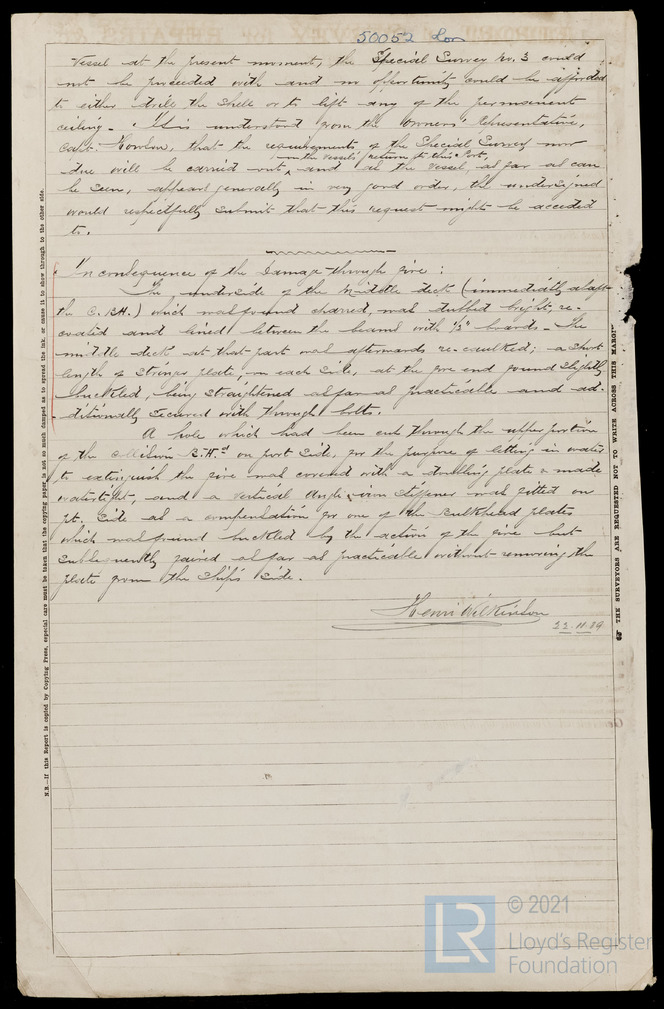 50052 Lon
Vessel at the present moment, the Special Survey No. 3 could
not be proceeded with and no opportunity could be afforded
to either drill the shell or to lift any of the permanent
ceiling. It is understood from the Owners' Representative,
Capt. that the requirements of the Special Survey now
due will be carried out, on the Vessel's return to this Port, and as the Vessel, as far as can
be seen, appears generally in very good order, the undersigned
would respectfully submit that this request might be acceded
to.
In consequence of the damage through fire:
The underside of the Middle deck (immediately abaft
the C. BH.) which was found charred, was dubbed bright, re-
coated and lined between the beams with 1½" boards. The
middle deck at that part was afterwards re-caulked; a short
length of Stringer plate, on each side, at the fore end found slightly
buckled, being straightened as far as practicable and ad-
ditionally secured with through bolts.
A hole which had been cut through the upper portion
of the Collision B.Hd on port side, for the purpose of letting in water
to extinguish the fire was covered with a doubling plate & made
watertight, and a vertical angle iron stiffener was fitted on
pt. side as a compensation for one of the Bulkhead plates
which was found buckled by the action of the fire but
subsequently faired as far as practicable without removing the
plate from the Ship's side.
Henri Wilkinson
22.11.89
N.B.—If this Report is copied by Copying Press, especial care must be taken that the copying paper is not so much damped as to spread the ink, or cause it to show through to the other side.
THE SURVEYORS ARE REQUESTED NOT TO WRITE ACROSS THIS MARGIN
LR
© 2021
Lloyd's Register
Foundation